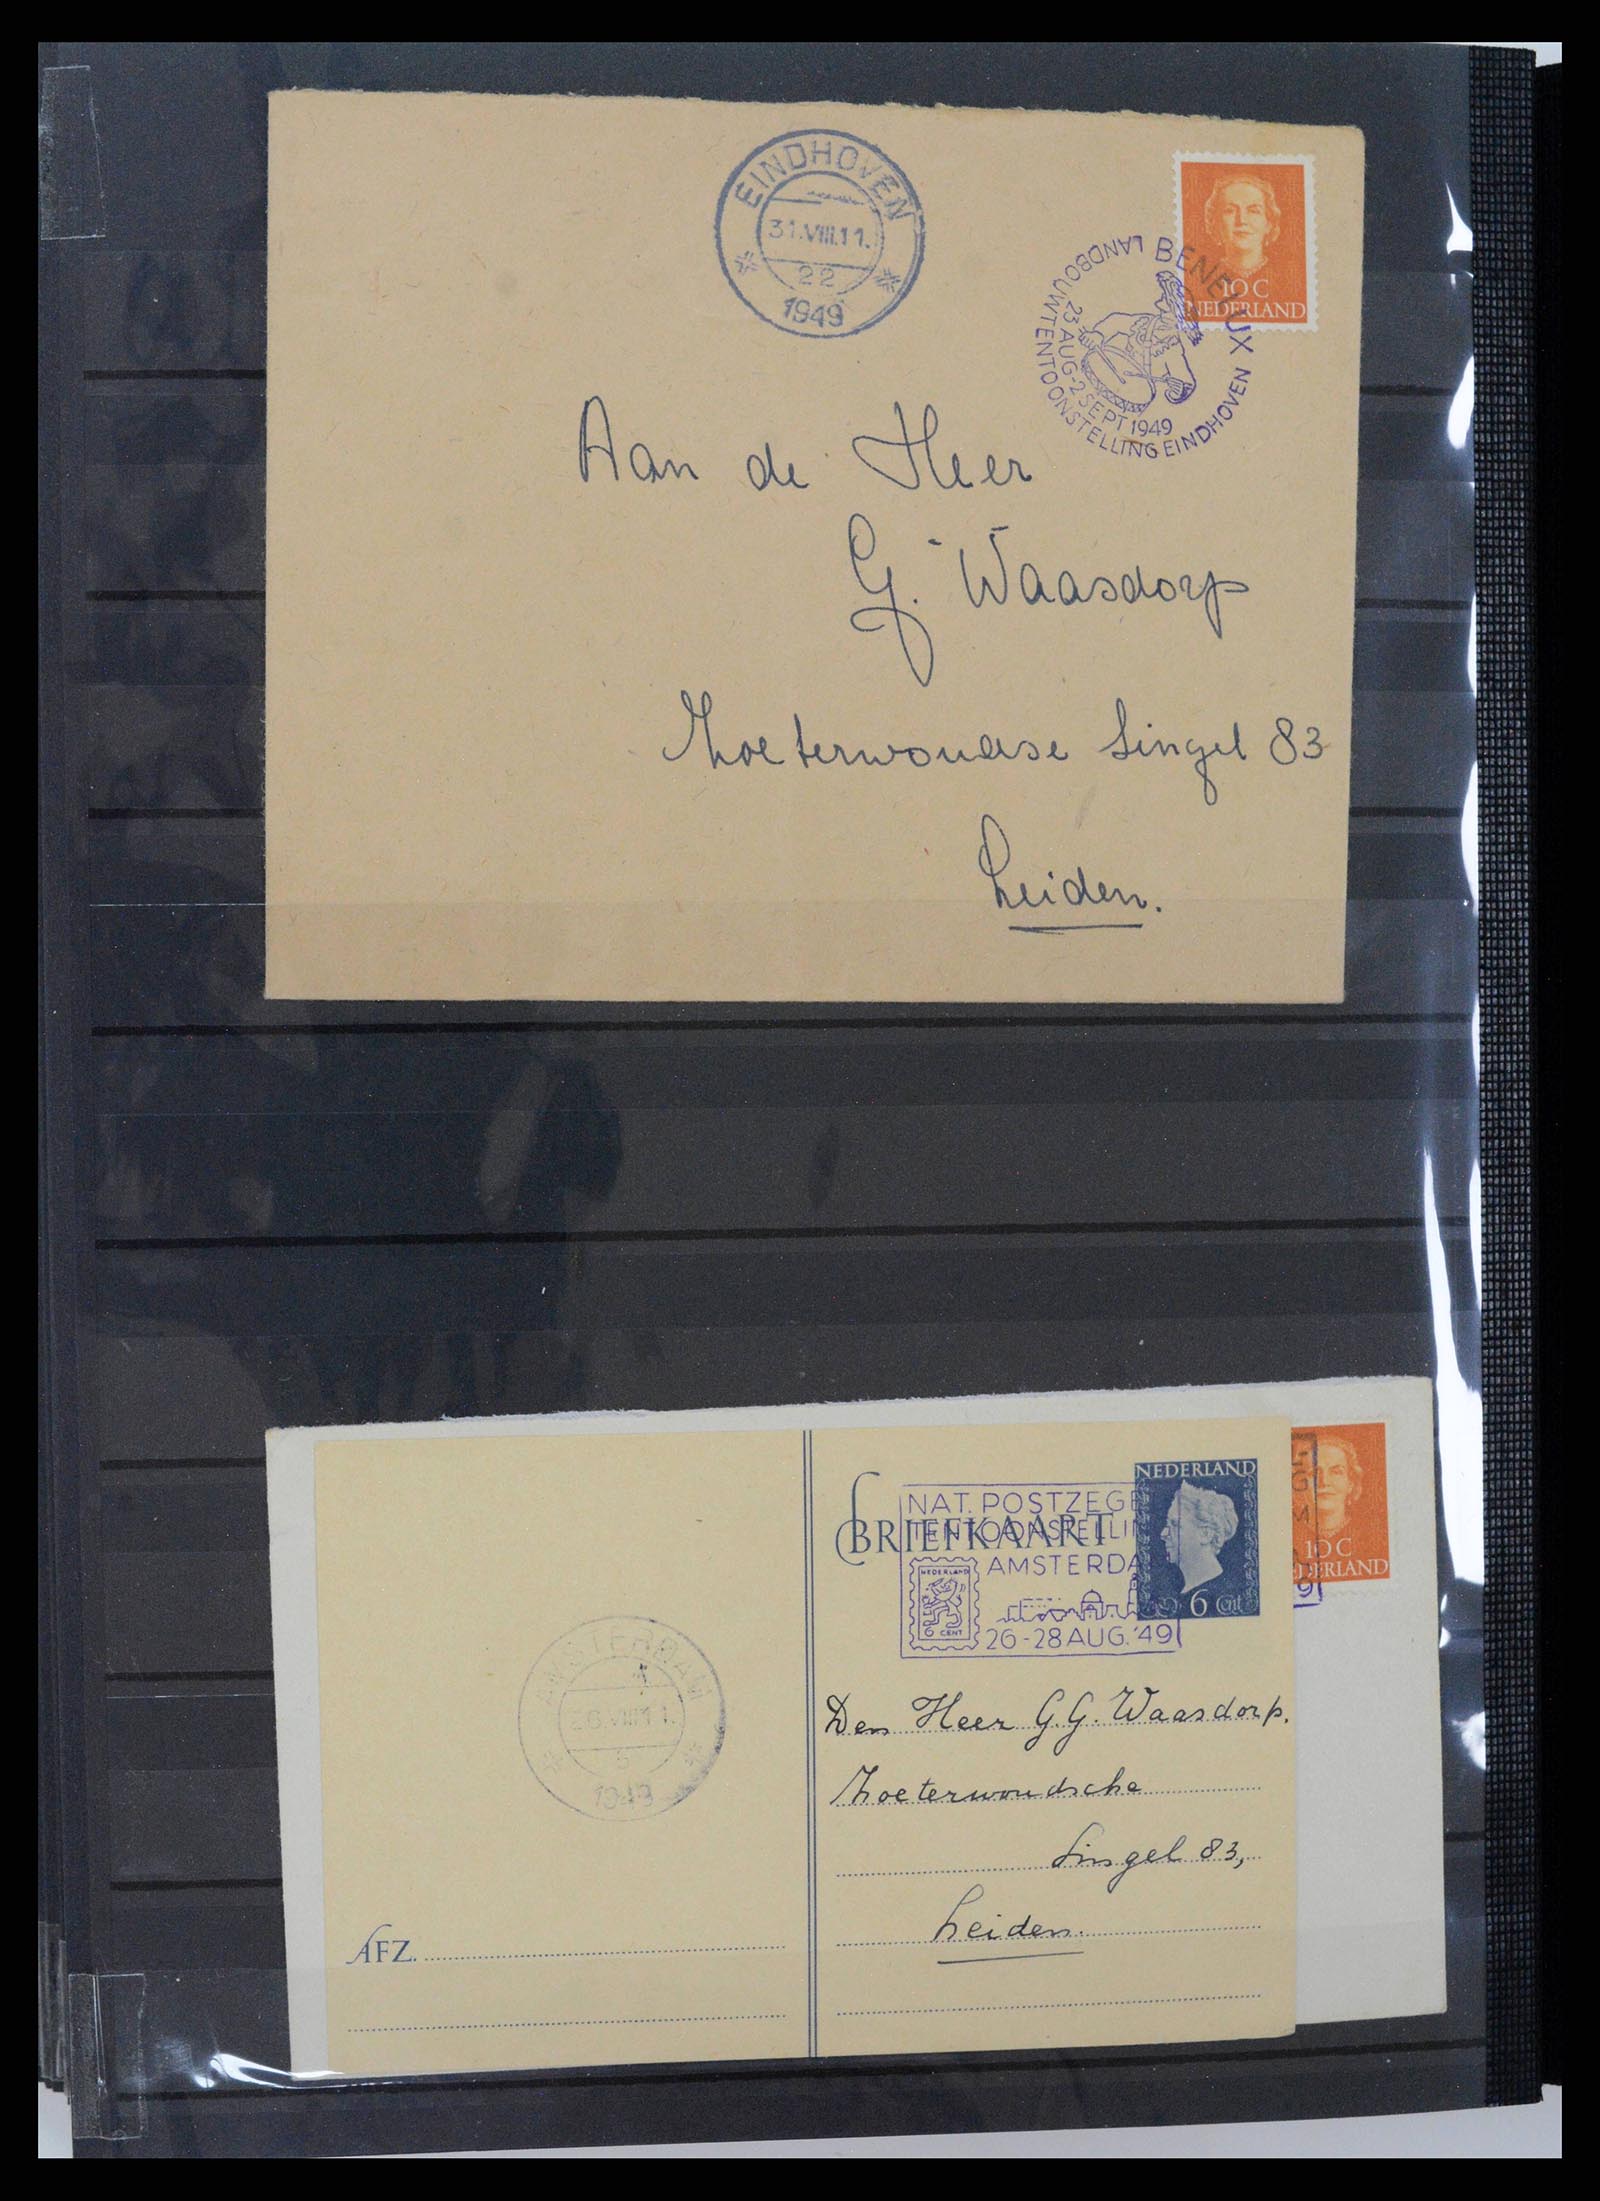 EINDHOVEN
31.VIII.11.
22
1949
10 C
NEDERLAND
BENELUX
LANDBOUWTENTOONSTELLING EINDHOVEN
23 AUG-2 SEPT 1949
Aan de Heer
G. Waasdorp
Zoeterwoudse Singel 83
Leiden.
NEDERLAND
6 Cent
BRIEFKAART
NAT. POSTZEGE
TENTOONSTELLIN
AMSTERDA
NEDERLAND
6 CENT
26-28 AUG. '49
10 C
NEDERLAND
AMSTERDAM
26.VIII.11.
5
1949
Den Heer G. G. Waasdorp.
Zoeterwoudsche
Singel 83,
Leiden.
AFZ.